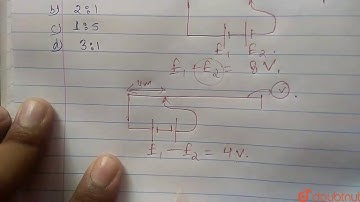 b) 2:1
c) 1:5
d) 3:1
E₁ E₂
E₁ + E₂ = 8 V.
4m
V
E₁ - E₂ = 4 V.
doubtnut